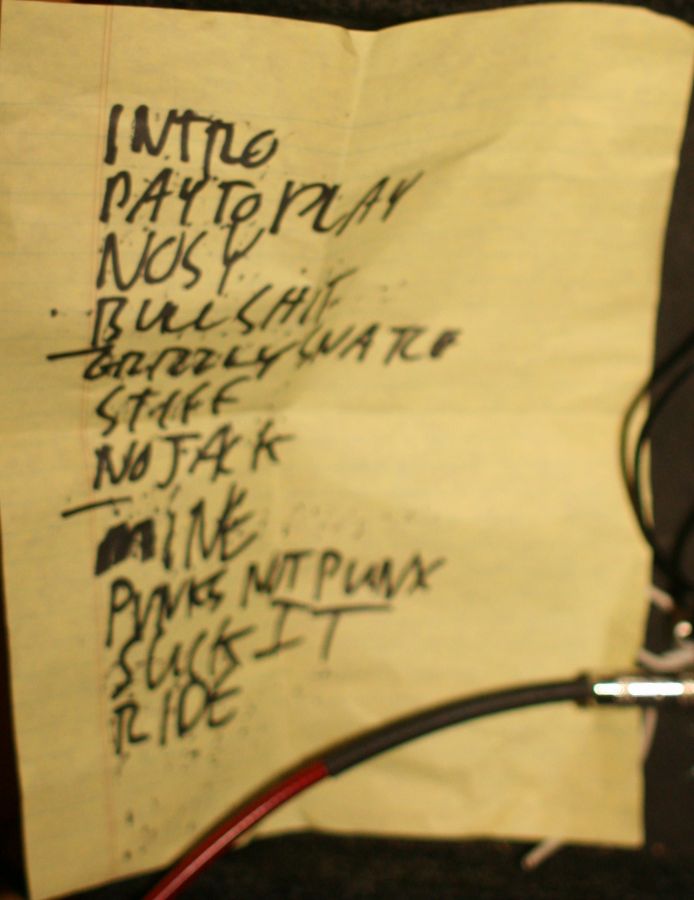 INTRO
PAY TO PLAY
NOSY
BULLSHIT
GRIZZLY SNATCH
STIFF
NO JACK
MINE
PUNKS NOT PUNX
SUCK IT
RIDE